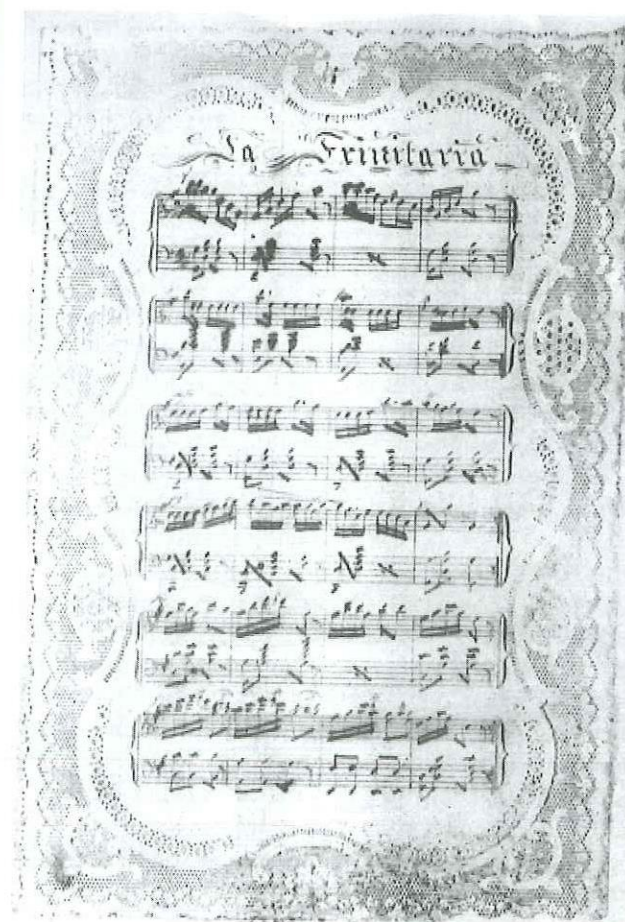 La Trinitaria